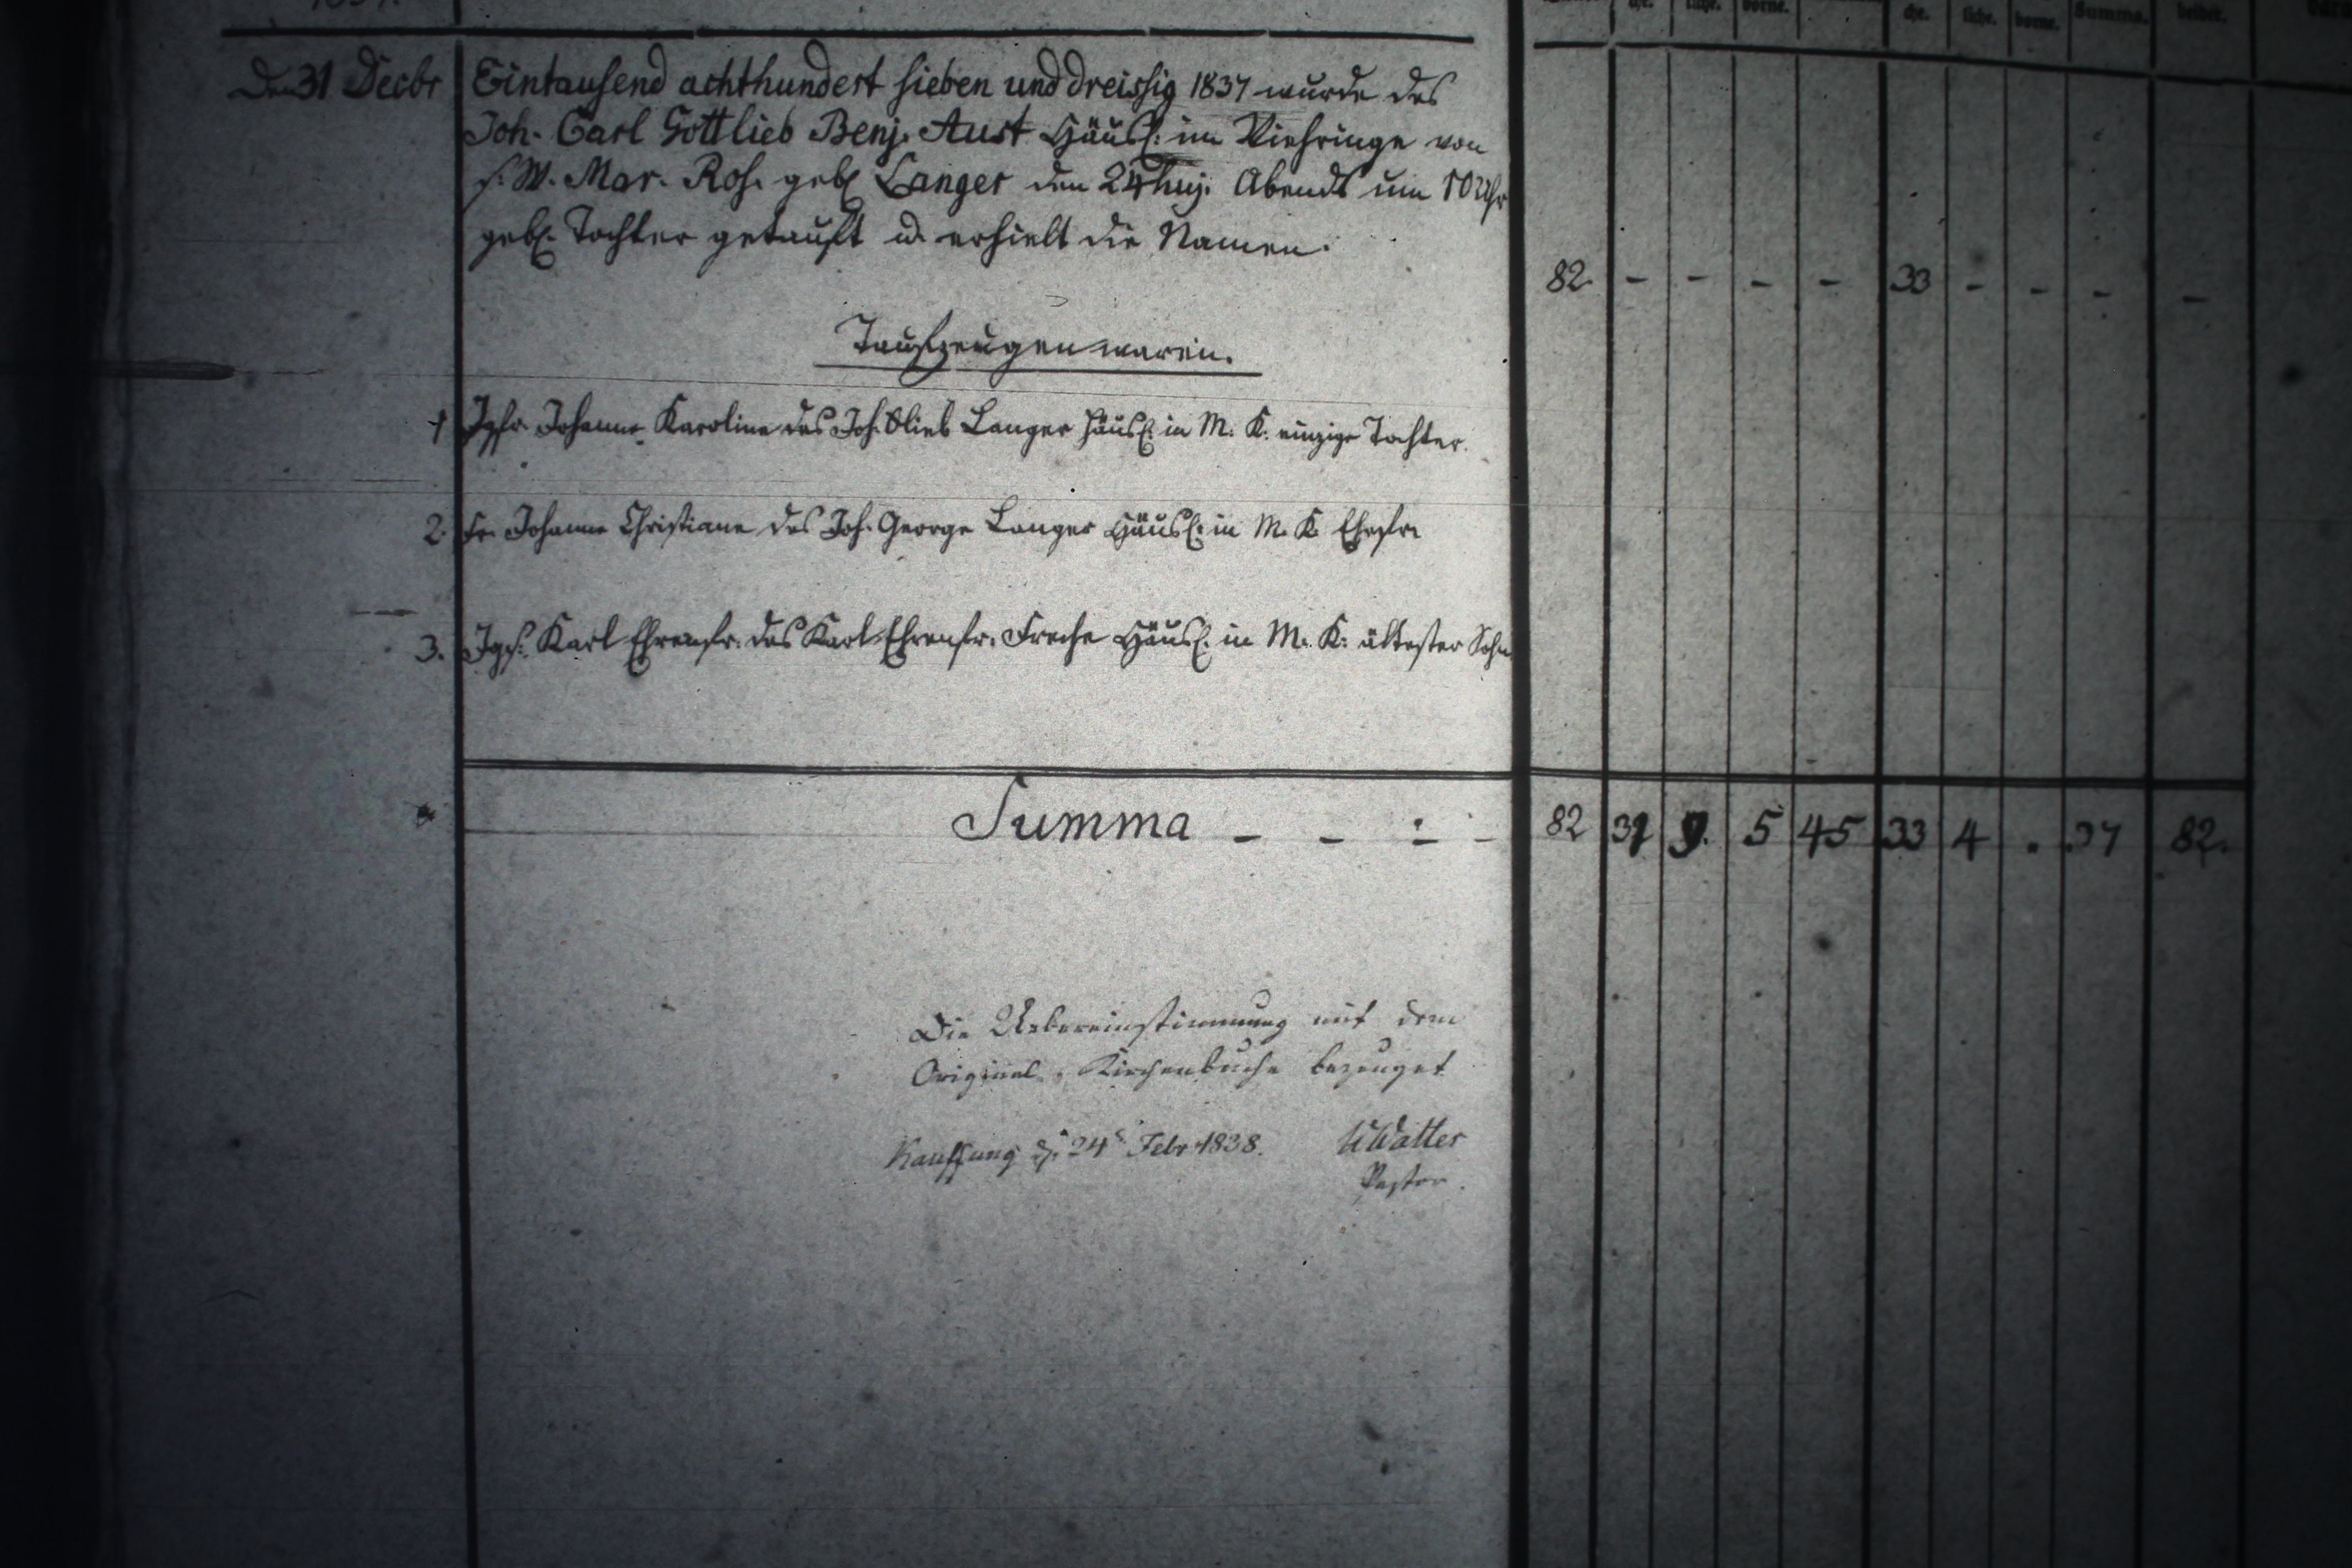 Den 31 Decbr Eintausend achthundert sieben und dreissig 1837 wurde des
Joh. Carl Gottlieb Benj. Aust Häusl: im Viehringe von
s. W. Mar. Ros. geb. Langer den 24 huj. Abends um 10 Uhr
geb. Tochter getauft u. erhielt die Namen.
82. - - - - 33 - - - -
Taufzeugen waren.
1 Jgfr. Johanne Karoline des Joh. Glieb Langer Häusl: in M. K. einzige Tochter.
2. Fr. Johanne Christiane des Joh. George Langer Häusl: in M. K. Ehefr.
3. Jgs. Karl Ehrenfr. des Karl Ehrenfr. Freche Häusl. in M. K. ältester Sohn
Summa - - - - 82 31 9. 5 45 33 4 . 37 82.
Die Uebereinstimmung mit dem
Original-Kirchenbuche bezeuget
Kauffung d. 24 Febr 1838.
Pastor.